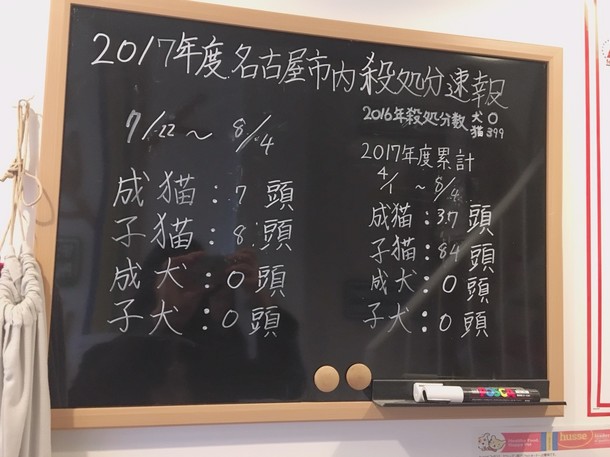 2017年度名古屋市内殺処分速報
2016年殺処分数 犬 0
猫 399
7/22 〜 8/4
成猫：7 頭
子猫：8 頭
成犬：0 頭
子犬：0 頭
2017年度累計
4/1 〜 8/4
成猫：37 頭
子猫：84 頭
成犬：0 頭
子犬：0 頭
POSCA
busse